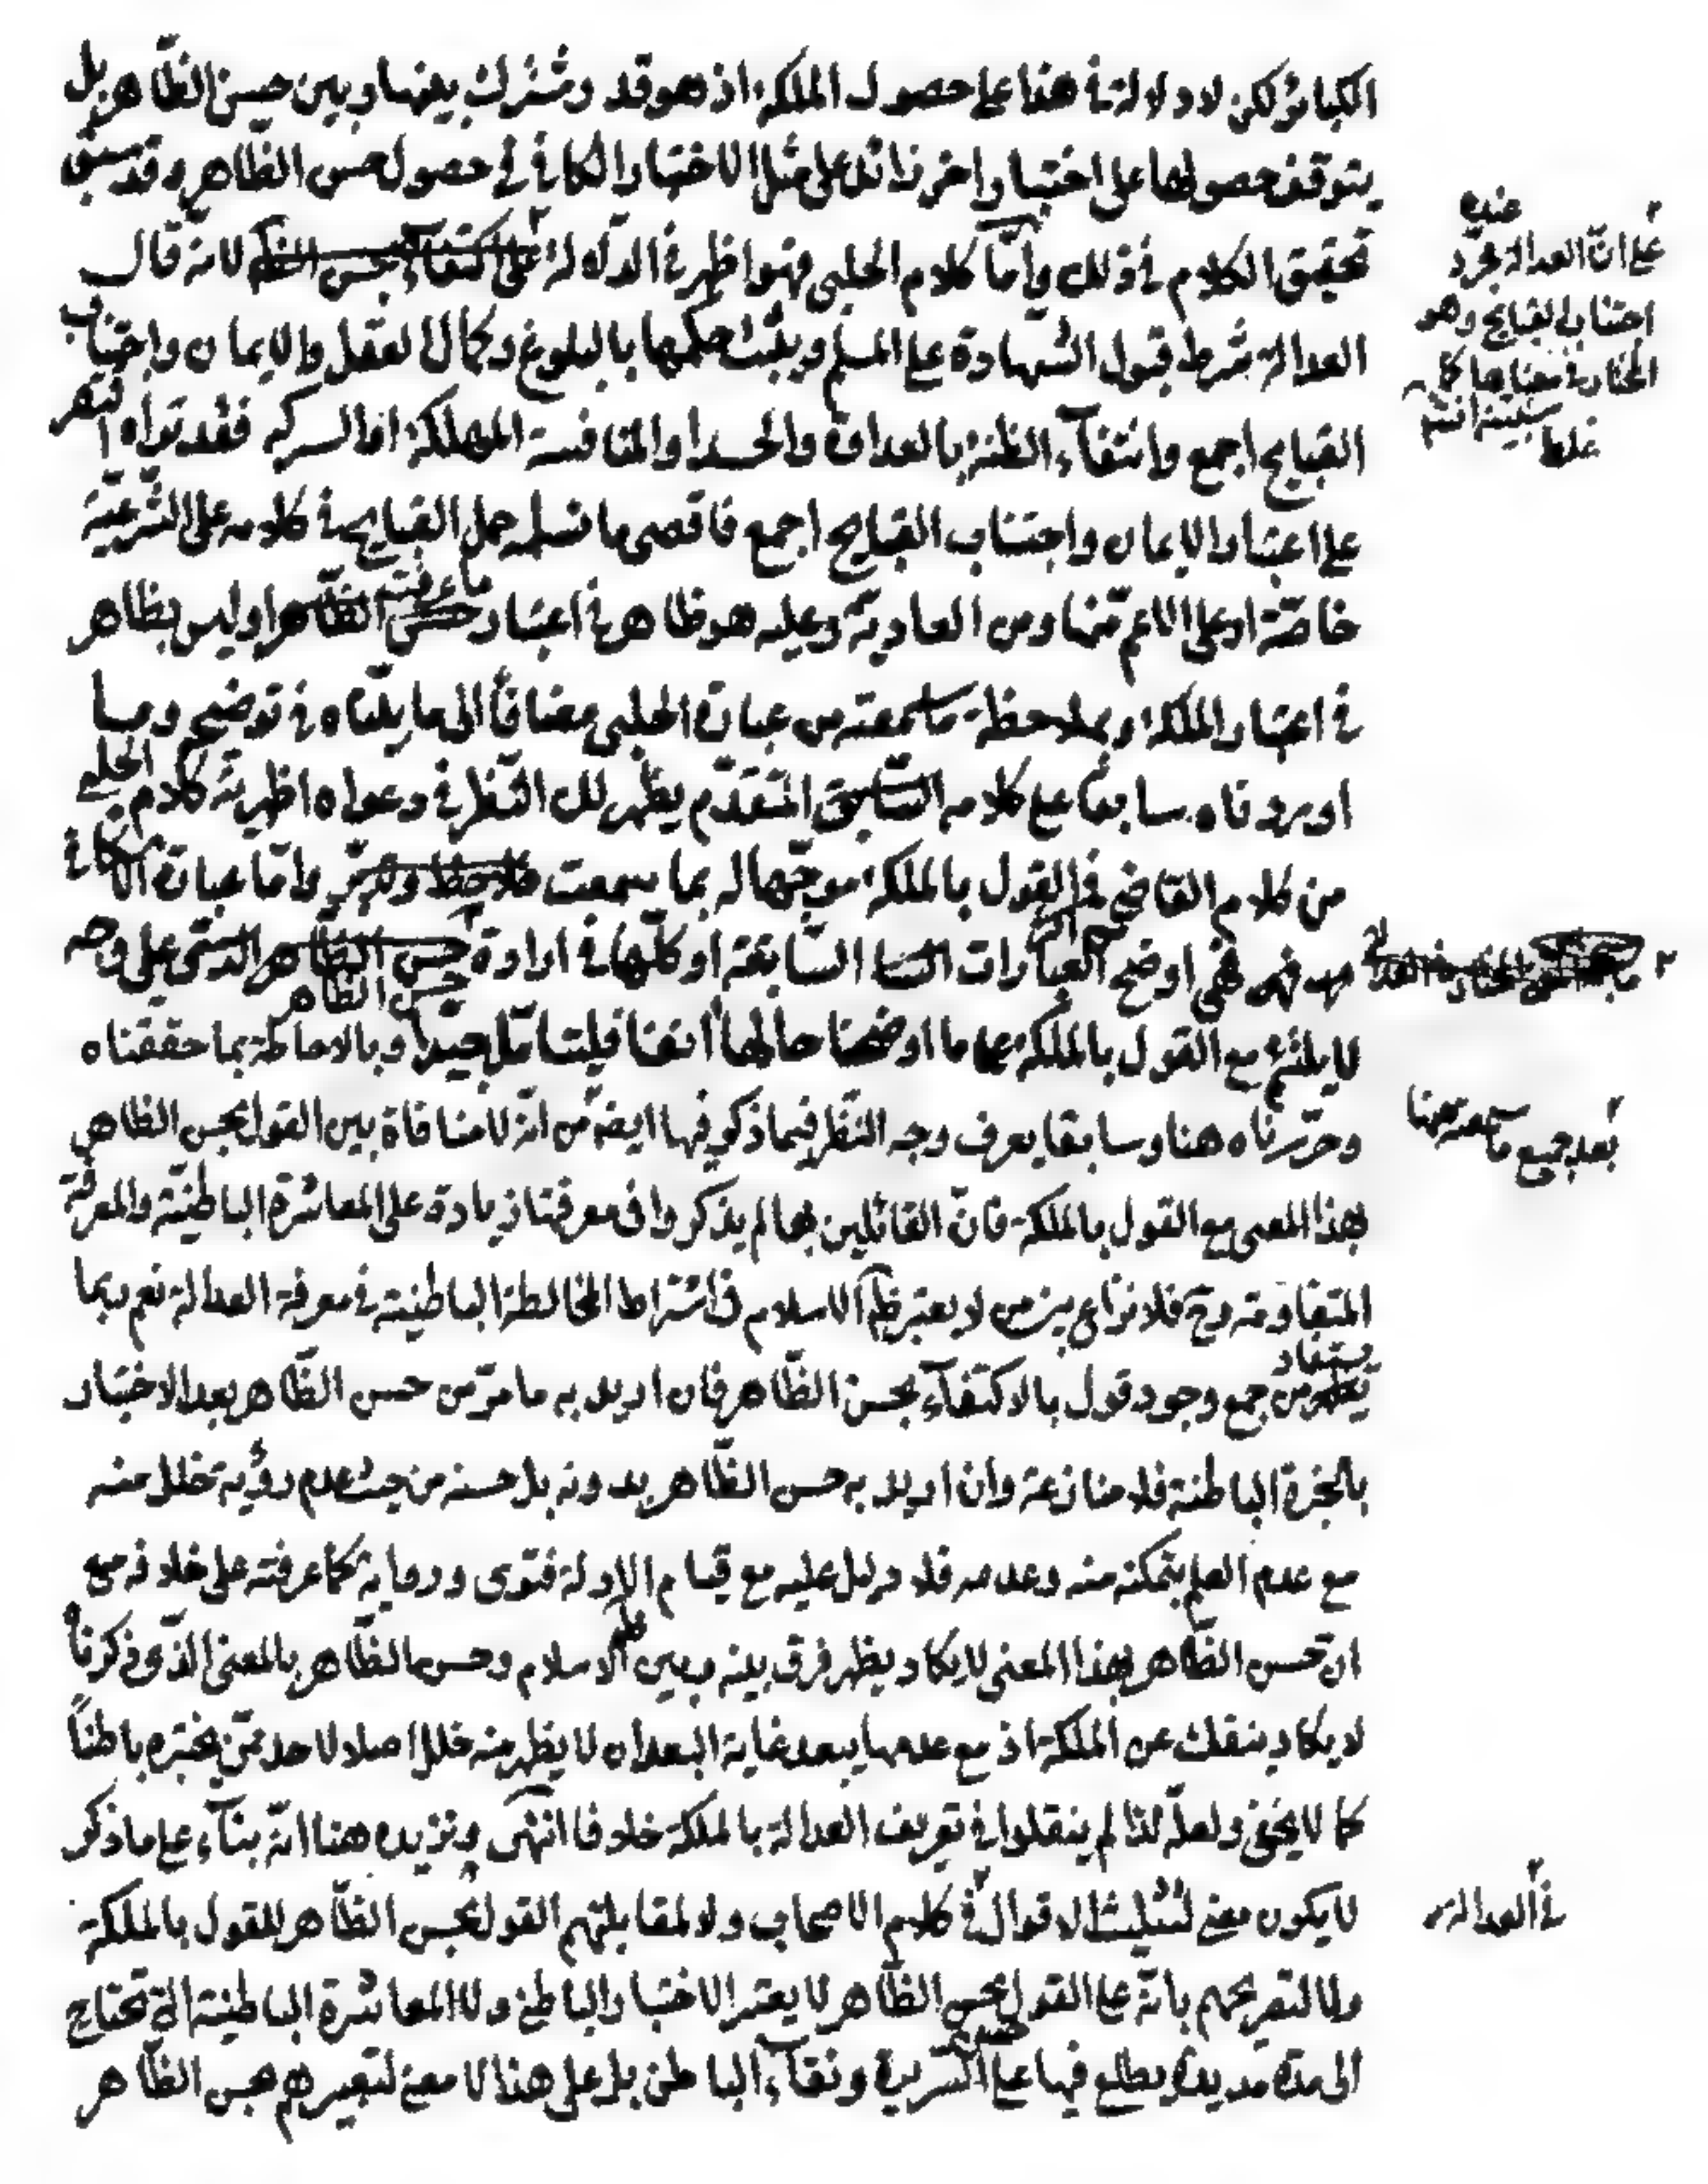 الكبائر لكن لا دلالة في هذا على حصول الملكة اذ هو قد وشترك بينها وبين حسن الظاهر بل
يتوقف حصولها على اختبار اخر زائد على مثل الاختبار الكافي في حصول حسن الظاهر وقد سبق
تحقيق الكلام في ذلك وامّا كلام الحلبي فهو اظهر في الدلالة على اكتفاء بحسن الظاهر لانه قال
العدالة شرط قبول الشهادة على المسلم ويثبت حكمها بالبلوغ وكمال العقل والايمان واجتناب
القبايح اجمع وانتفآء الظنة بالعداوة والحسد او المنافسة المملكة او السركه فقد تراه اقتصر
على اعتبار الايمان واجتناب القبايح اجمع فاقصى ما نسلم حمل القبايح في كلامه على الشّرعيّة
خاصّة او على الاعم منها ومن العاديّة وعليه هو ظاهر في اعتبار ما عرفته حسن الظّاهر او ليس بظاهر
في اعتبار الملكة وبملاحظة ما سمعته من عبارة الحلبي مضافاً الى ما بيّناه في توضيح وما
اوردناه سابقا على كلامه السّابق المتقدّم يظهر لك النّظر في دعواه اظهريّة كلام الحلبي
من كلام القاضي في القول بالملكة موجّها له بما سمعت فلاحظ وتدبّر وامّا عبارة الكافي
فهي اوضح العبارات السّابقة او كلّها في ارادة حسن الظاهر على وجه
لا يلتئم مع القول بالملكة مما اوضحنا حالها آنفا فليتامّل جيّدا وبالاحاطة بما حققناه
وحرّرناه هنا وسابقا يعرف وجه النّظر فيما ذكر فيها ايضا من انّه لا منافاة بين القول بحسن الظاهر
بهذا المعنى مع القول بالملكة فانّ القائلين بها لم يذكروا في معرفتنا زيادة على المعاشرة الباطنيّة والمعرفة
المتقاومة وح فلا نزاع بين من لا يعتبر ظهر الاسلام في اشتراط المخالطة الباطنية في معرفة العدالة نعم ربما
يستفاد يظهر من جمع وجود قول بالاكتفآء بحسن الظّاهر فان اريد به ما مرّ من حسن الظّاهر بعد الاختبار
بالخبرة الباطنة فلا منازعة وان اريد به حسن الظّاهر بدونه بل حسنه من حيث عدم رؤية خلل منه
مع عدم العلم بتمكنه منه وعدمه فلا دليل عليه مع قيام الادلة فتوى ورواية كما عرفته على خلافه مع
ان حسن الظّاهر بهذا المعنى لا يكاد يظهر فرق بينه وبين ظهر الاسلام وحسن الظّاهر بالمعنى الّذي ذكرناه
لا يكاد ينفك عن الملكة اذ مع عدمها يبعد غاية البعد ان لا يظهر منه خلل اصلا لاحد ممّن يختبره باطناً
كما لا يخفى ولعلّه لذا لم ينقلوا في تعريف العدالة بالملكة خلافا انتهى ونزيده هنا انّه بنآء على ما ذكر
لا يكون معنى لتثليث الاقوال في كلام الاصحاب ولا لمقابلتهم القول بحسن الظّاهر للقول بالملكة
ولا لتصريحهم بانّه على القول بحسن الظّاهر لا يعتبر الاختبار الباطن ولا المعاشرة الباطنية التي تحتاج
الى مدّة مديدة يطلع فيها على السّريرة ونقآء الباطن بل على هذا لا معنى لتعبيرهم بحسن الظّاهر
عنده
على انّ العدالة مجرّد
اجتناب القبايح وهو
المختار في معناها كما
سبيّنه انتهى
غلط
بعد جميع ما سمعته هنا
في العدالة